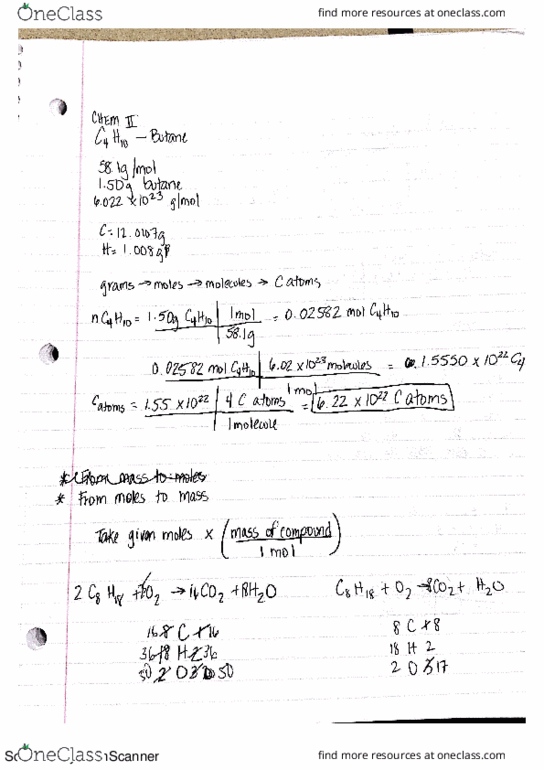 OneClass
find more resources at oneclass.com
CHEM II
C4H10 - Butane
58.1g/mol
1.50g butane
6.022 x10^23 g/mol
C=12.0107g
H=1.008g
grams → moles → molecules → C atoms
nC4H10 = 1.50g C4H10 | 1mol = 0.02582 mol C4H10
58.1g
0.02582 mol C4H10 | 6.02 x 10^23 molecules = 1.5550 x 10^22 C4
1 mol
Catoms = 1.55 x10^22 | 4 C atoms = 6.22 x 10^22 C atoms
1 molecule
* From mass to moles
* From moles to mass
Take given moles x (mass of compound / 1 mol)
2 C8H18 + O2 → CO2 + 18H2O C8H18 + O2 → 8CO2 + H2O
16 8 C 16 8 C 8
36 18 H 2 36 18 H 2
50 2 O 50 2 O 3 17
OneClass
Scanner
find more resources at oneclass.com